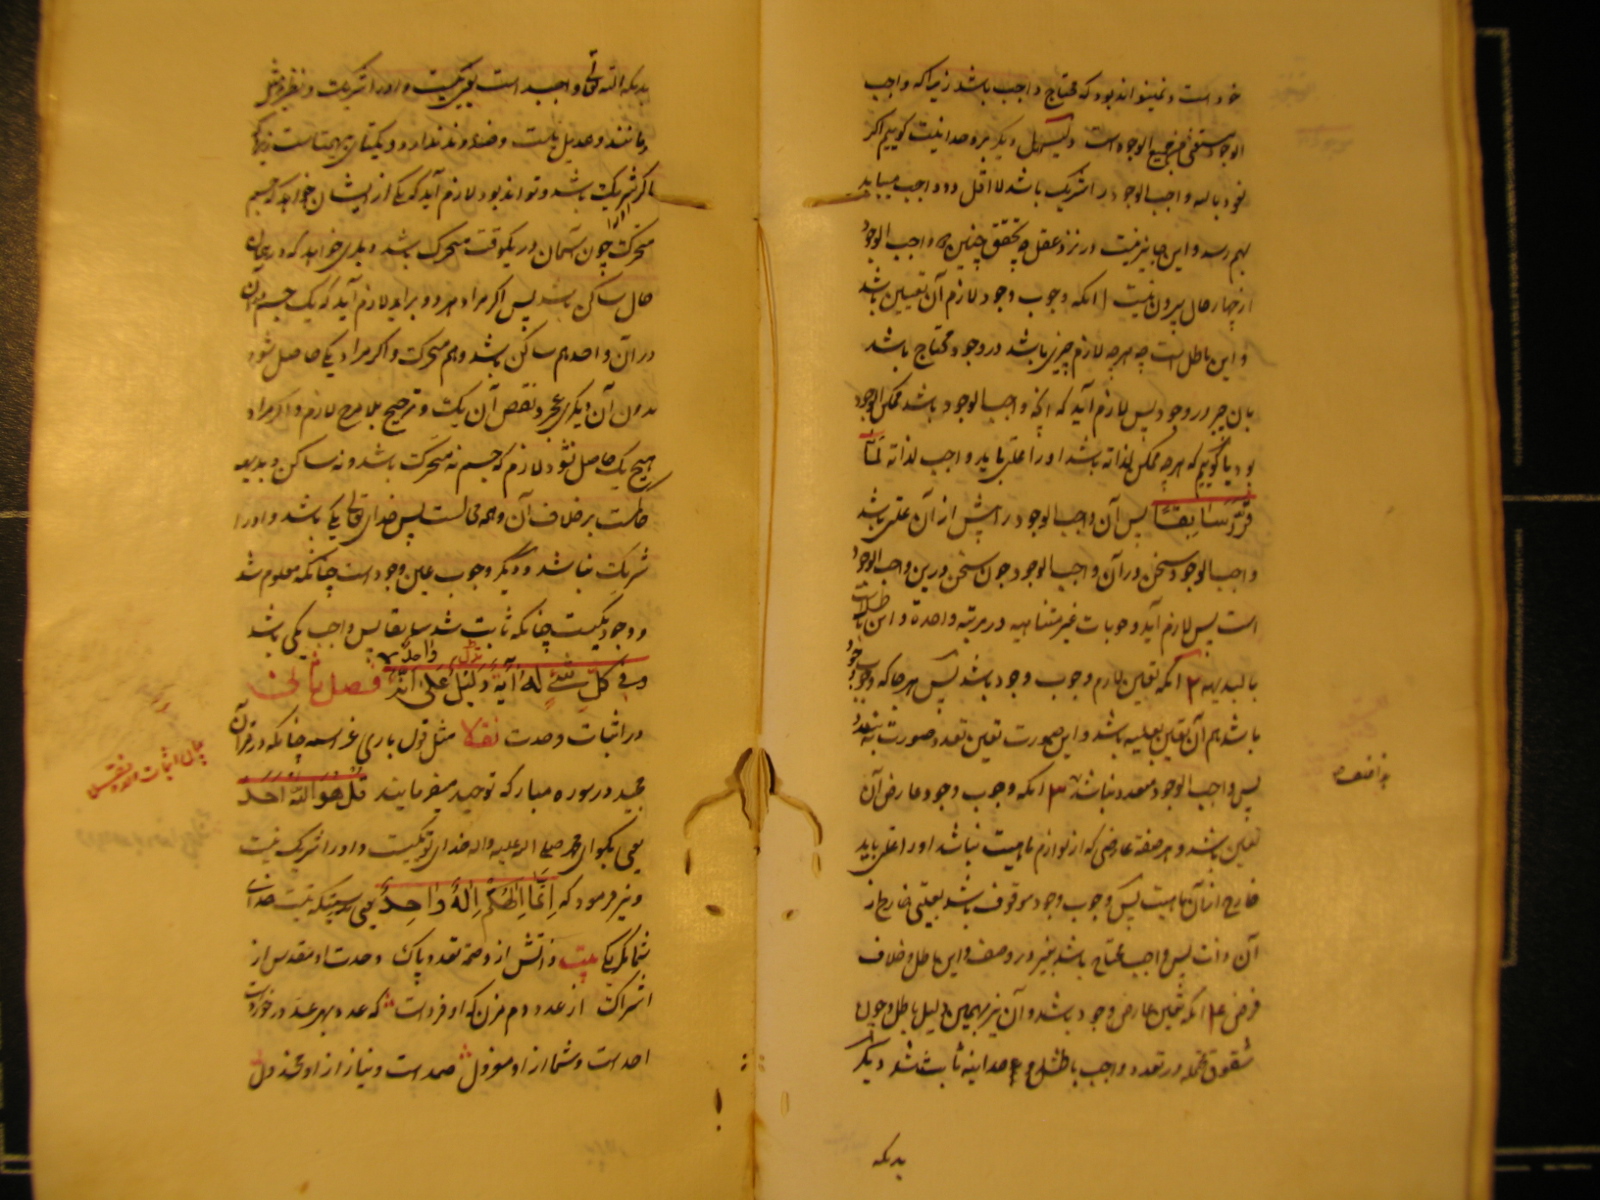 خود است و نمیتواند بود که محتاج واجب باشد زیرا که واجب
الوجود مستغنی من جمیع الوجوه است دلیل دیگر بر وحدانیت گوییم اگر
نعوذ بالله واجب الوجود را شریک باشد لااقل دو واجب میباید
بهم رسد و این جایز نیست در نزد عقل چه تحقق چنین واجب الوجود
از چهار حال بیرون نیست ۱ آنکه وجوب وجود لازم آن تعیین باشد
و این باطل است چه هرچه لازم چیزی باشد در وجود محتاج باشد
بان چیز در وجود پس لازم آید که آنچه واجب الوجود باشد ممکن الوجود
بود یا گوییم که هرچه ممکن لذاته باشد او را علتی باید و واجب لذاته لما
قرر سابقا پس آن واجب الوجود را پیش از آن علتی باشد
واجب الوجود سخن در آن واجب الوجود چون سخن درین واجب الوجود
است پس لازم آید وجوبات غیر متناهیه در مرتبه واحدة و این باطلست
بالبدیهه ۲ آنکه تعین لازم وجوب وجود باشد پس هر جا که وجوب وجود
باشد هم آن تعین بعینه باشد و این صورت تعین تعدد صورت نبندد
پس واجب الوجود متعدد نباشد ۳ آنکه وجوب وجود عارض آن
تعین باشد و هر صفة عارضی که از لوازم ماهیت نباشد او را علتی باید
خارج از آن ماهیت پس وجوب وجود موقوف باشد بعلتی خارج از
آن ذات پس واجب محتاج باشد بغیر در وصف و این باطل و خلاف
فرض ۴ آنکه تعین عارض وجود باشد و آن نیز بهمین دلیل باطل و چون
شقوق محتمله در تعدد واجب باطل شد وحدانیة ثابت شد دیگر
بدانکه
بدانکه الله تعالی واجبد است و او را شریک و نظیر و مثل
و مانند و عدیل نیست و ضد و ند ندارد و یکتای بیهمتاست زیرا که
اگر شریک باشد و تواند بود لازم آید که یکی از ایشان خواهد که جسم
متحرک چون آسمان در یکوقت متحرک باشد و دیگری خواهد که در همان
حال ساکن باشد پس اگر مراد هر دو براید لازم آید که یک جسم در آن
در آن واحد هم ساکن باشد و هم متحرک و اگر مراد یکی حاصل شود
بدون آن دیگری عجز و نقص آن یک و ترجیح بلا مرجح لازم و اگر مراد
هیچ یک حاصل نشود لازم که جسم نه متحرک باشد و نه ساکن و بدیهه
حاکمست برخلاف آن و همه محالست پس خدای تعالی یکی باشد و او را
شریک نباشد و دیگر وجوب عین وجود است چنانکه معلوم شد
و وجود یکیست چنانکه ثابت شد سابقا پس واجب یکی باشد
و فی کل شیء له آیة دلیل علی انه واحد فصل ثانی
در اثبات وحدت نقلا مثل قول باری عز اسمه چنانکه در قرآن
مجید در سوره مبارکه توحید میفرمایند قل هو الله احد
یعنی بگو ای محمد صلی الله علیه واله خدای تو یکیست و او را شریک نیست
و نیز فرمود که انما الهکم اله واحد یعنی بدرستیکه نیست خدای
شما مگر یکی بیت ذاتش از وصمه تعدد پاک وحدت او مقدس از
اشراک از عدد دم مزن که او فرد است که عدد بهر عد در خورد است
احد است و شمار ازو معزول صمد است و نیاز ازو مخذول
بیان اثبات وحدت نقلی